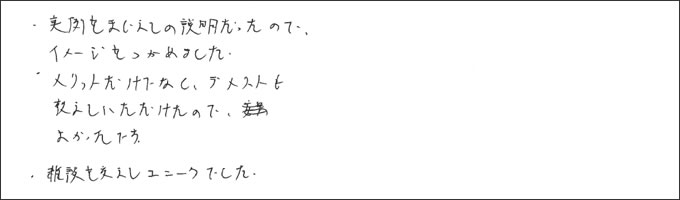 ・実例をまじえての説明だったので、
イメージもつかめました。
・メリットだけでなく、デメリットも
教えていただけたので、
よかったです。
・雑談も交えてユニークでした。